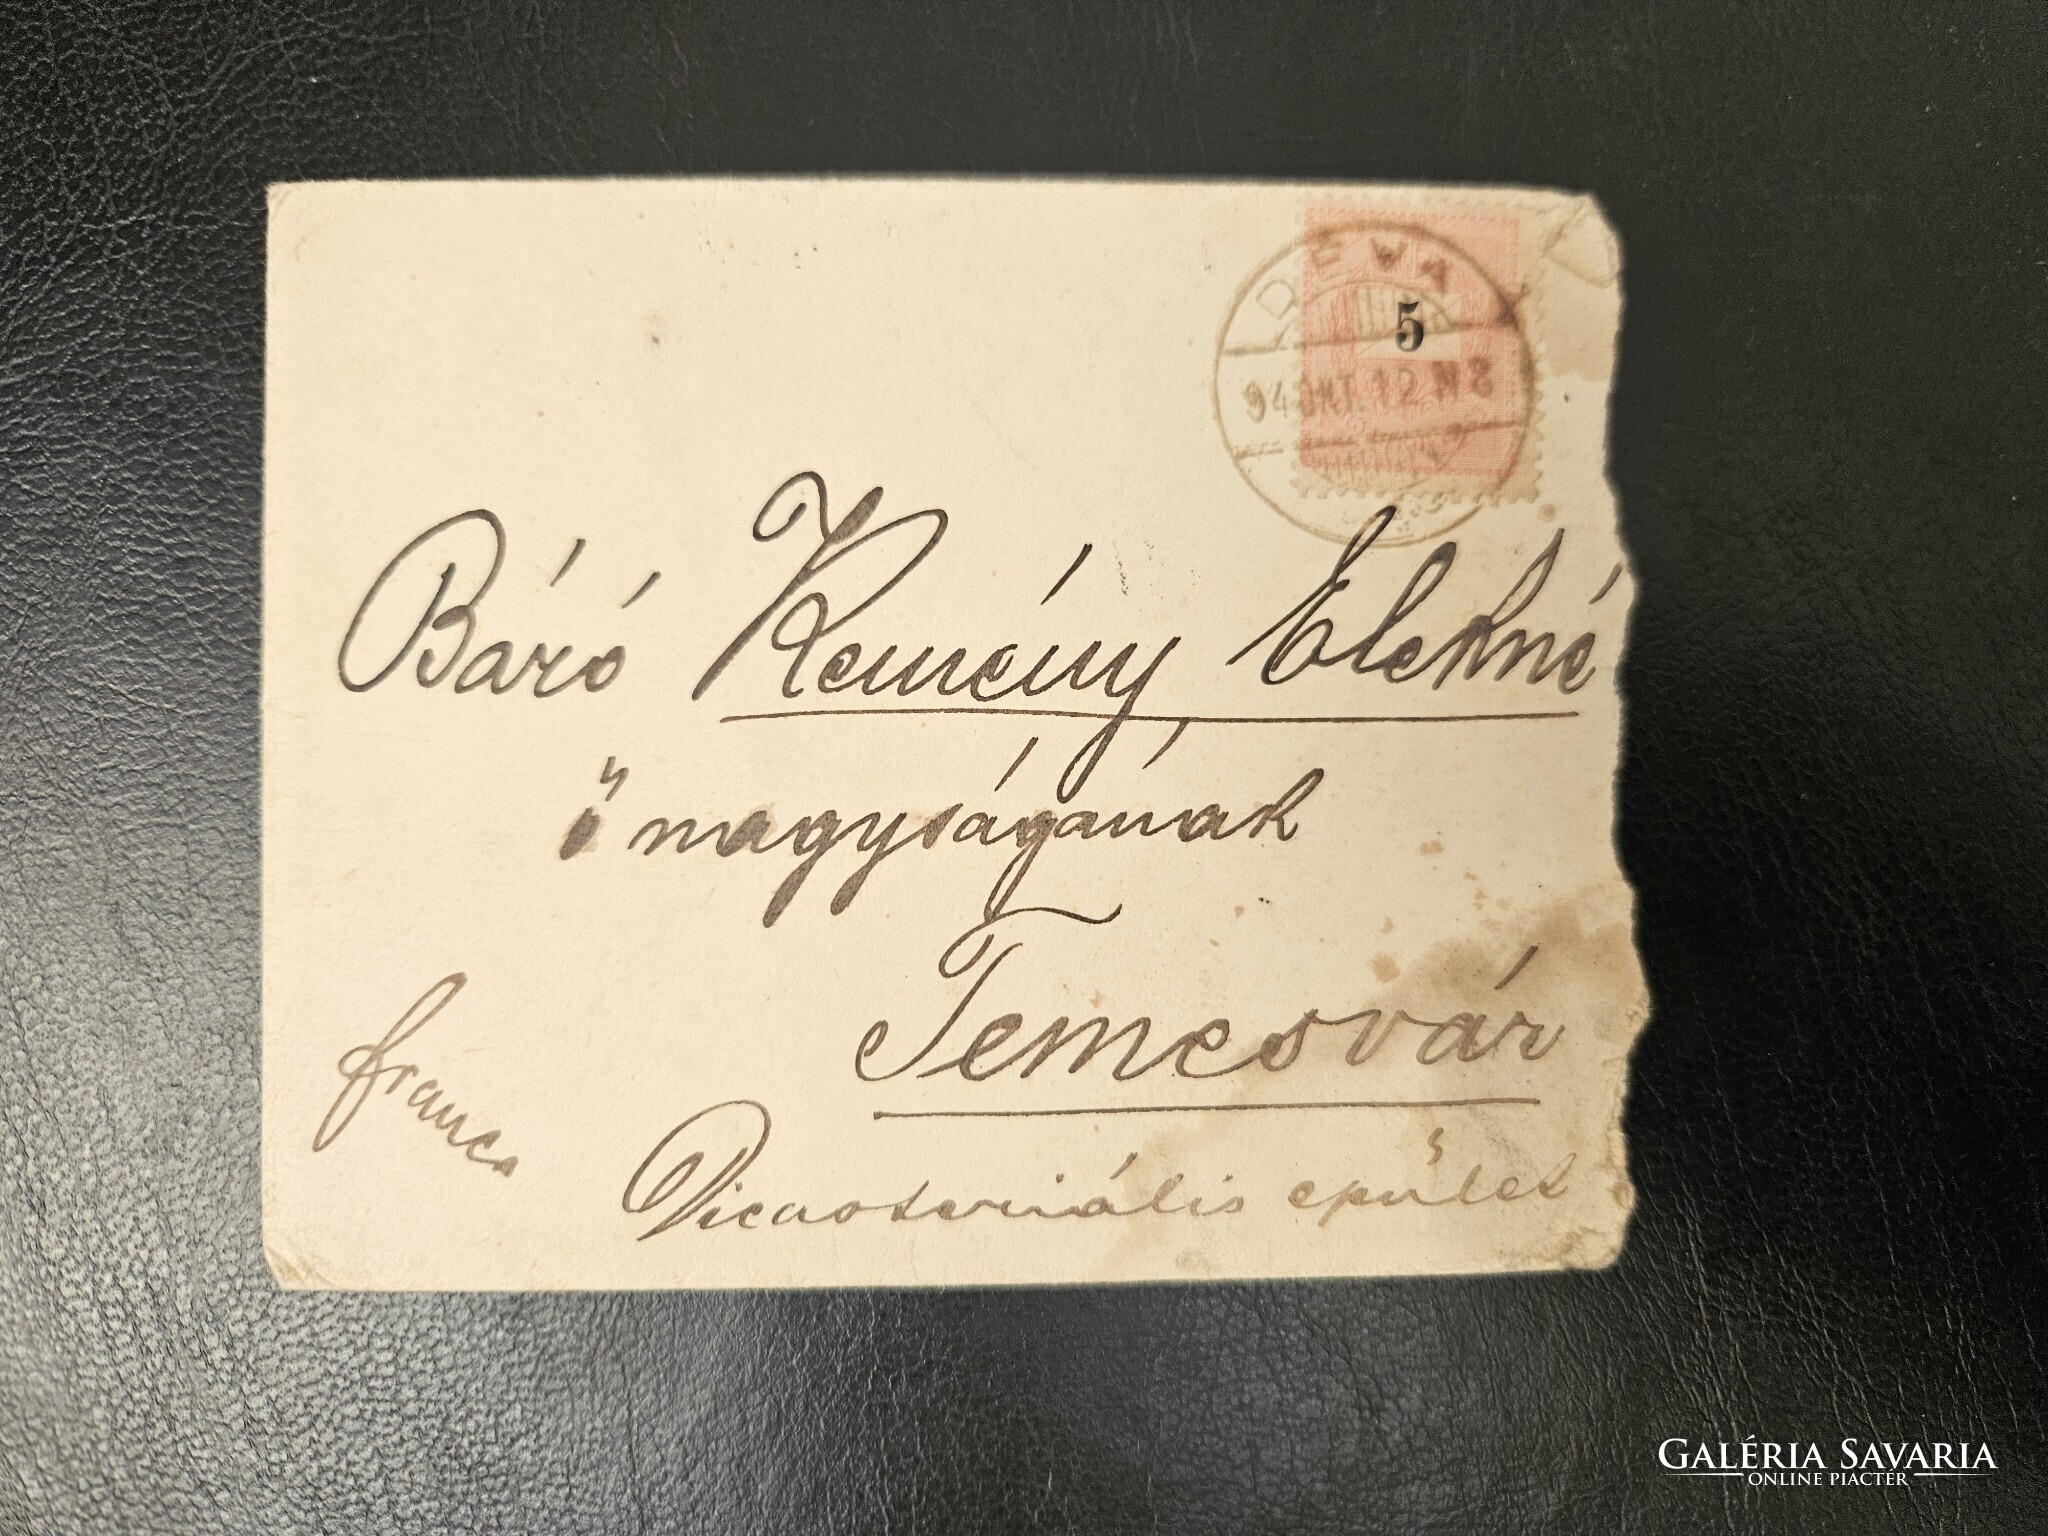 DEVA
5
94 OKT. 12 N 8
Báró Kemény Elekné
ő nagyságának
Temesvár
franco
Dicasteriális épület
GALÉRIA SAVARIA
ONLINE PIACTÉR